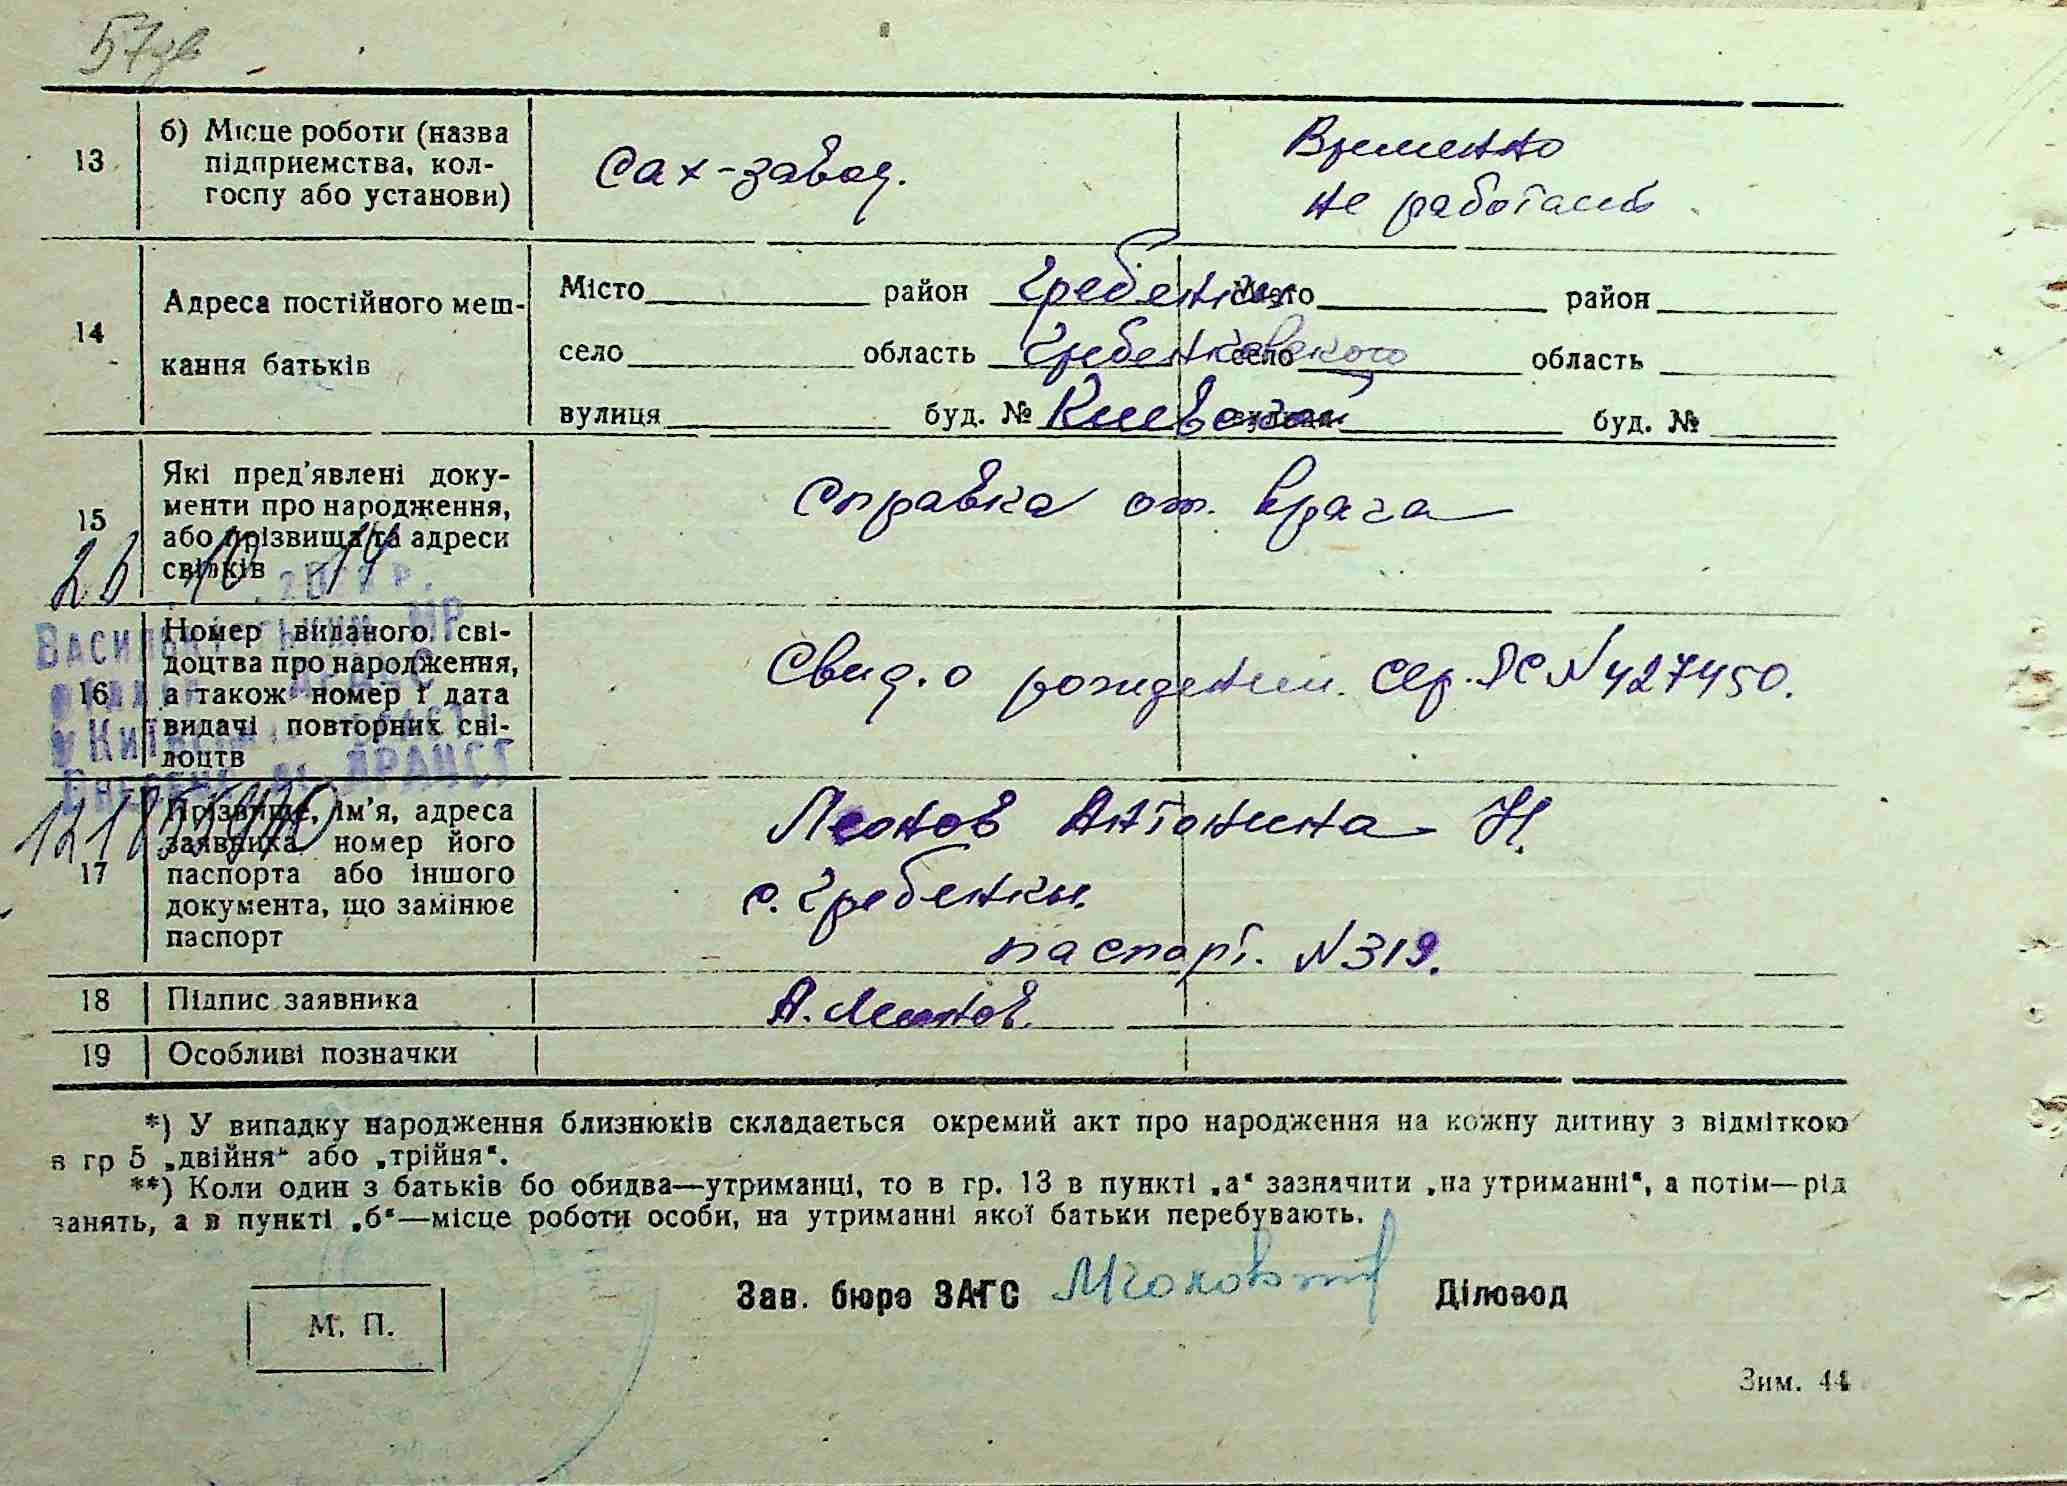 57зв
13
б) Місце роботи (назва
підприємства, кол-
госпу або установи)
Сах-завод.
Временно
не работает
14
Адреса постійного меш-
кання батьків
Місто район Гребенки Місто район
село область Гребенковского село область
вулиця буд. № Киевской вулиця буд. №
15
Які пред'явлені доку-
менти про народження,
або прізвища та адреси
свідків
Справка от. врача
26 10 14
16
Номер виданого сві-
доцтва про народження,
а також номер і дата
видачі повторних сві-
доцтв
Свид. о рождении. Сер. ЛС N 427450.
17
Прізвище, ім'я, адреса
заявника номер його
паспорта або іншого
документа, що замінює
паспорт
Леонов Антонина Н.
с. Гребенки.
паспорт. N 319.
18
Підпис заявника
А. Леонов.
19
Особливі позначки
*) У випадку народження близнюків складається окремий акт про народження на кожну дитину з відміткою
в гр 5 „двійня“ або „трійня“.
**) Коли один з батьків бо обидва—утриманці, то в гр. 13 в пункті „а“ зазначити „на утриманні“, а потім—рід
занять, а в пункті „б“—місце роботи особи, на утриманні якої батьки перебувають.
Зав. бюро ЗАГС
Діловод
М. П.
Зим. 44